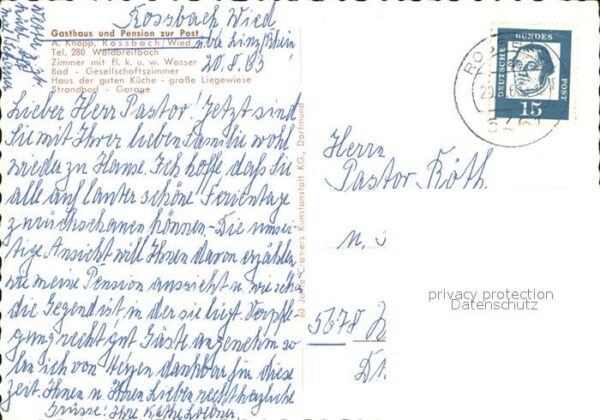 Rossbach Wied
Gasthaus und Pension zur Post
A. Knapp, Rossbach/Wied
über Linz/Rhein
Tel. 280 Waldbreitbach
20.8.63
Zimmer mit fl. k. u. w. Wasser
Bad - Gesellschaftszimmer
Haus der guten Küche - große Liegewiese
Strandbad - Garage
Lieber Herr Pastor! Jetzt sind
Sie mit Ihrer lieben Familie wohl
wieder zu Hause. Ich hoffe daß Sie
alle auf lauter schöne Ferientage
zurückschauen können. Die umsei-
tige Ansicht will Ihnen davon erzählen
wie meine Pension aussieht u. wie schön
die Gegend ist, in der sie liegt. Verpfle-
gung recht gut Gäste angenehm so
bin ich von Herzen dankbar für diese
Zeit. Ihnen u. Ihren Lieben recht herzliche
Grüsse! Ihre Käthe
Cramers Kunstanstalt KG., Dortmund
DEUTSCHE BUNDESPOST
15
Herrn
Pastor Röth
5678
privacy protection
Datenschutz